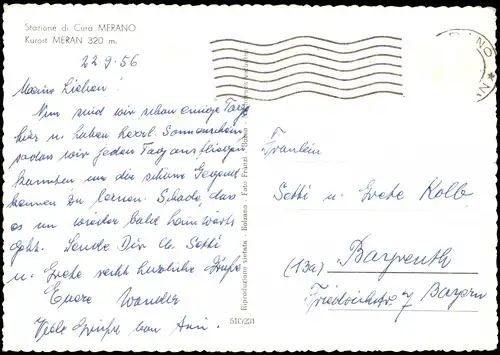 Stazione di Cura MERANO
Kurort MERAN 320 m.
22.9.56
Meine Lieben!
Nun sind wir schon einige Tage
hier u. haben herrl. Sonnenschein
sodass wir jeden Tag ausfliegen
konnten um die schöne Gegend
kennen zu lernen. Schade, das
es nun wieder bald heimwärts
geht. Sende Dir lb. Setti
u. Grete recht herzliche Grüße
Euere
Viele Grüße von
Riproduzione vietata - Bolzano - Foto Franzl - Bozen -
510/231
Fräulein
Setti u. Grete Kolb
(13a) Bayreuth
Bayern